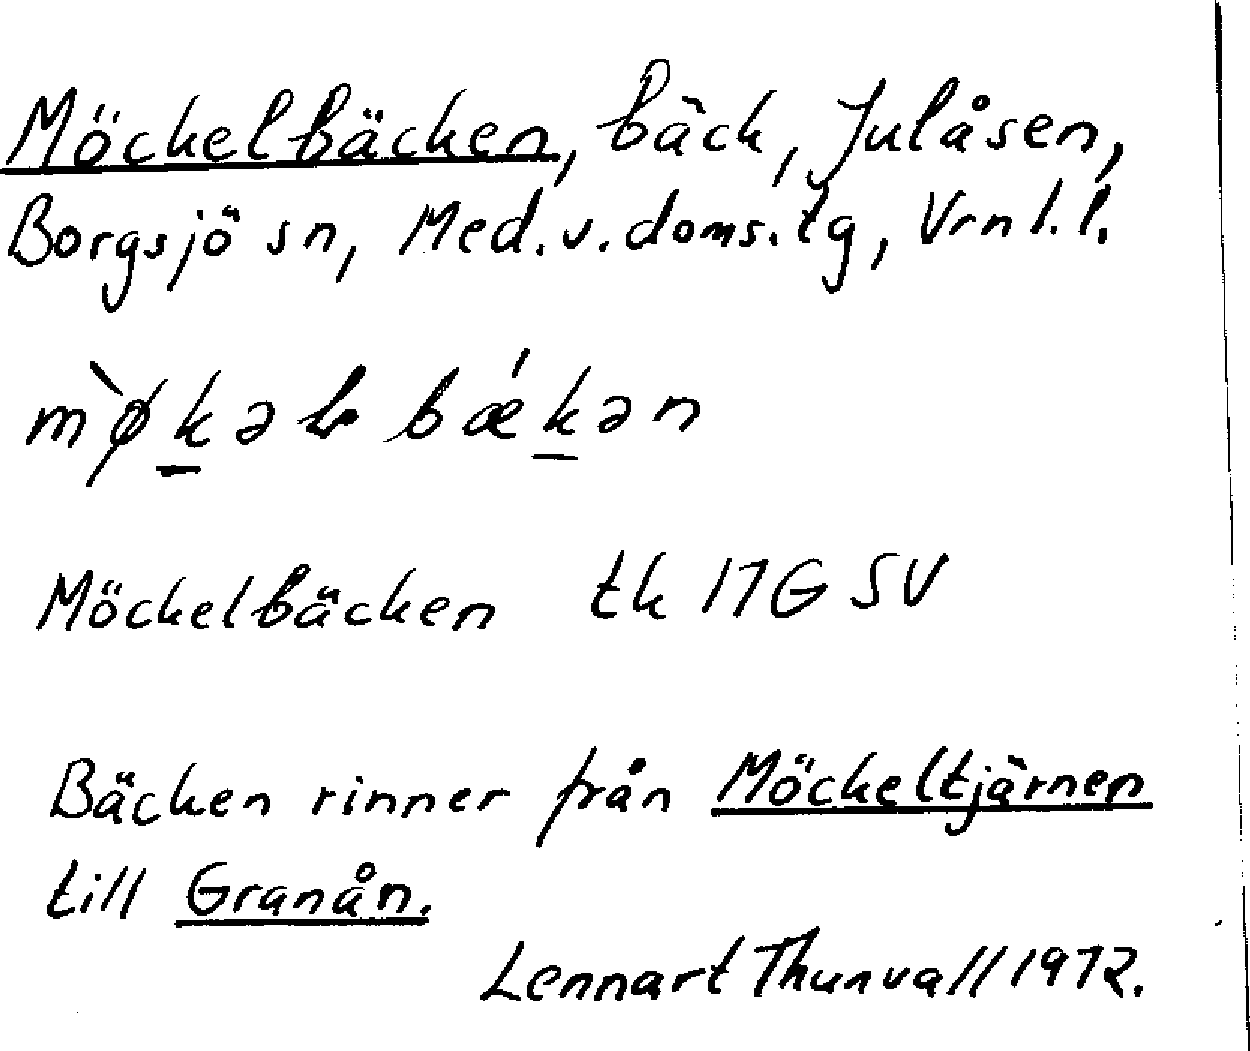 Möckelbäcken, bäck, Julåsen,
Borgsjö sn, Med. v. doms. tg, Vrnl. l.
mø̀kəɫbǽkən
Möckelbäcken tk 17G SV
Bäcken rinner från Möckeltjärnen
till Granån.
Lennart Thunvall 1972.